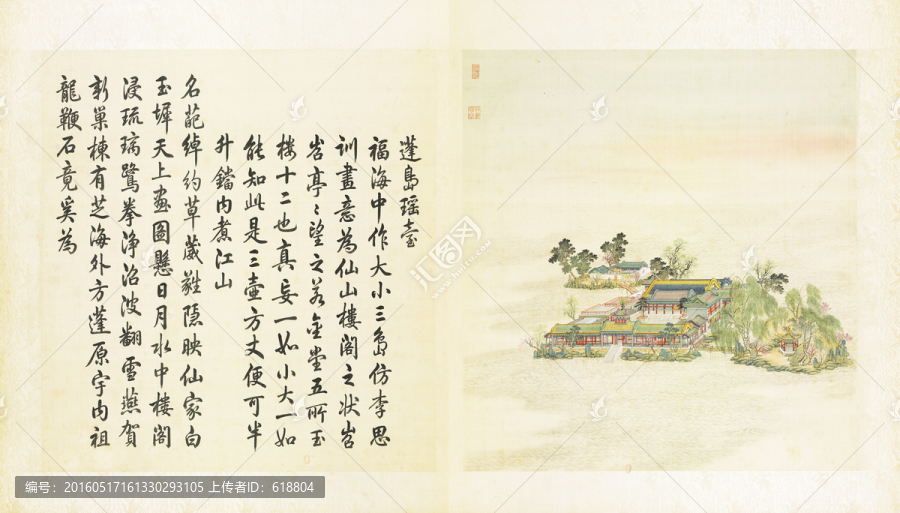 蓬島瑶臺
福海中作大小三島仿李思
訓畫意為仙山樓閣之状岧
岧亭〻望之若金堂五所玉
樓十二也真妄一如小大一如
能知此是三壺方丈便可半
升鐺内煮江山
名葩綽約草葳蕤隱映仙家白
玉墀天上畫圖懸日月水中樓閣
浸琉璃鷺拳淨沼波翻雪燕賀
新巢棟有芝海外方蓬原宇内祖
龍鞭石竟奚為
汇图网
编号:20160517161330293105 上传者ID:618804